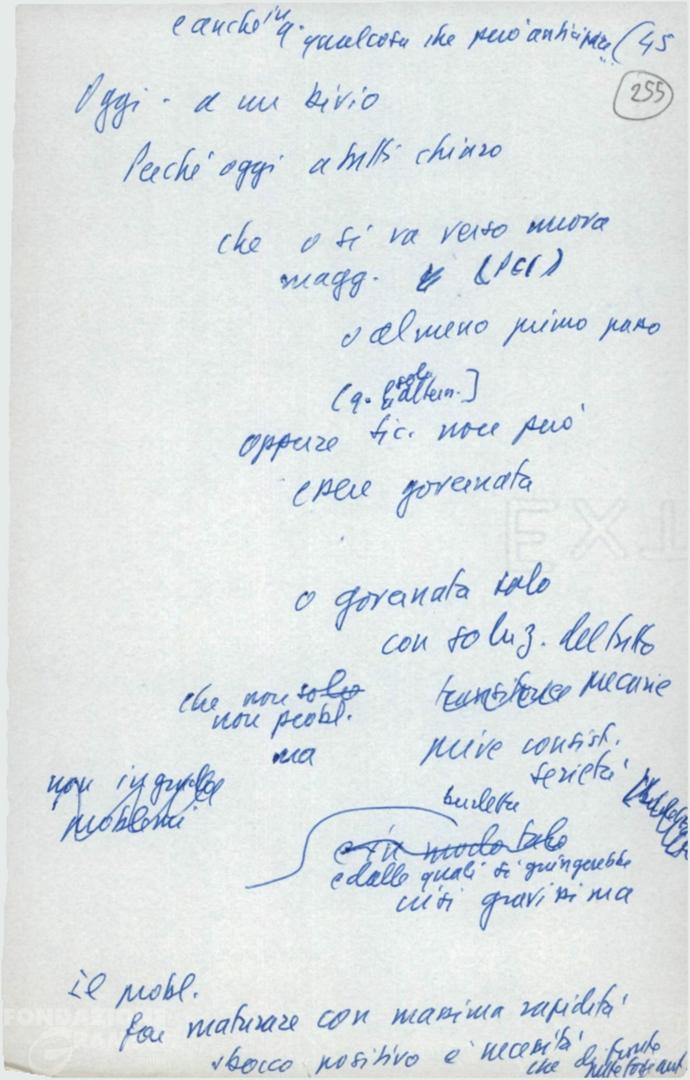 e anche in q. qualcosa che può anticipare (45
255
Oggi - a un bivio
Perché oggi a tutti chiaro
che o si va verso nuova
magg. (PCI)
o almeno primo passo
solo
oppure sic. non può
essere governata
o governata solo
con soluz. del tutto
che non solo precarie
non probl.
ma prive consist.
serietà
non in grado
problemi
burletta
e in modo tale
e dalle quali si giungerebbe
crisi gravissima
il probl.
far maturare con massima rapidità
sbocco positivo e necessità
che di fronte
FONDAZIONE
GRAMSCI